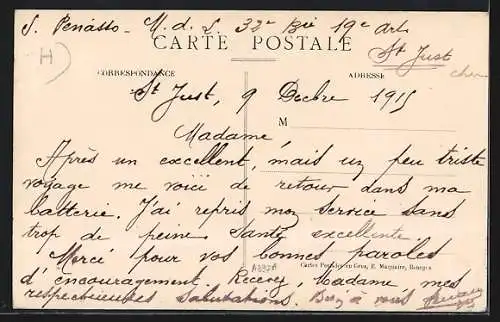 S. Penasso - M. d. L. 32e Bie 19e art
CARTE POSTALE
St Just
H
cher
CORRESPONDANCE
ADRESSE
St Just, 9 Decbre 1915
M
Madame,
Après un excellent, mais un peu triste
voyage me voici de retour dans ma
batterie. J'ai repris mon service sans
trop de peine. Santé excellente.
Merci pour vos bonnes paroles
Cartes Postales en Gros, E. Maquaire, Bourges
d'encouragement. Recevez, Madame, mes
respectueuses salutations. Bien à vous